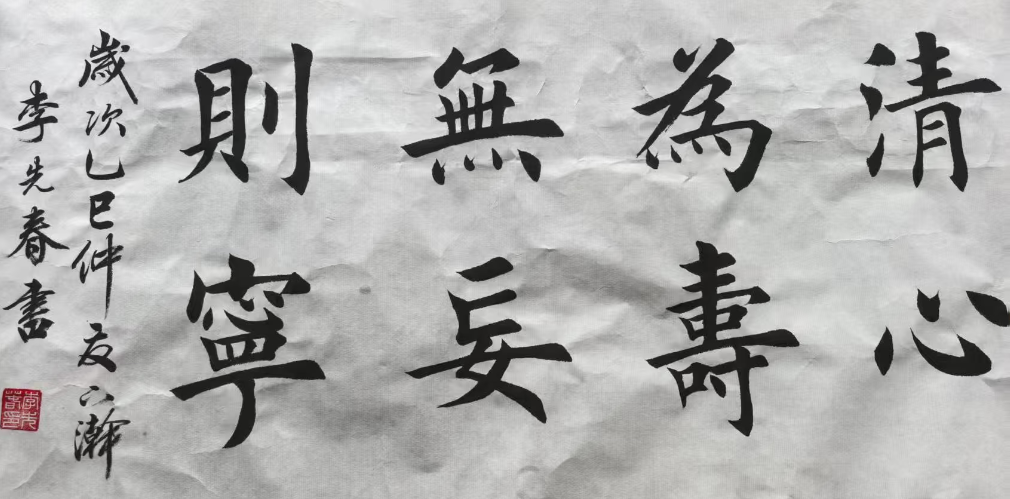 清心
為壽
無妄
則寧
歲次乙巳仲夏以瀚
李先春書